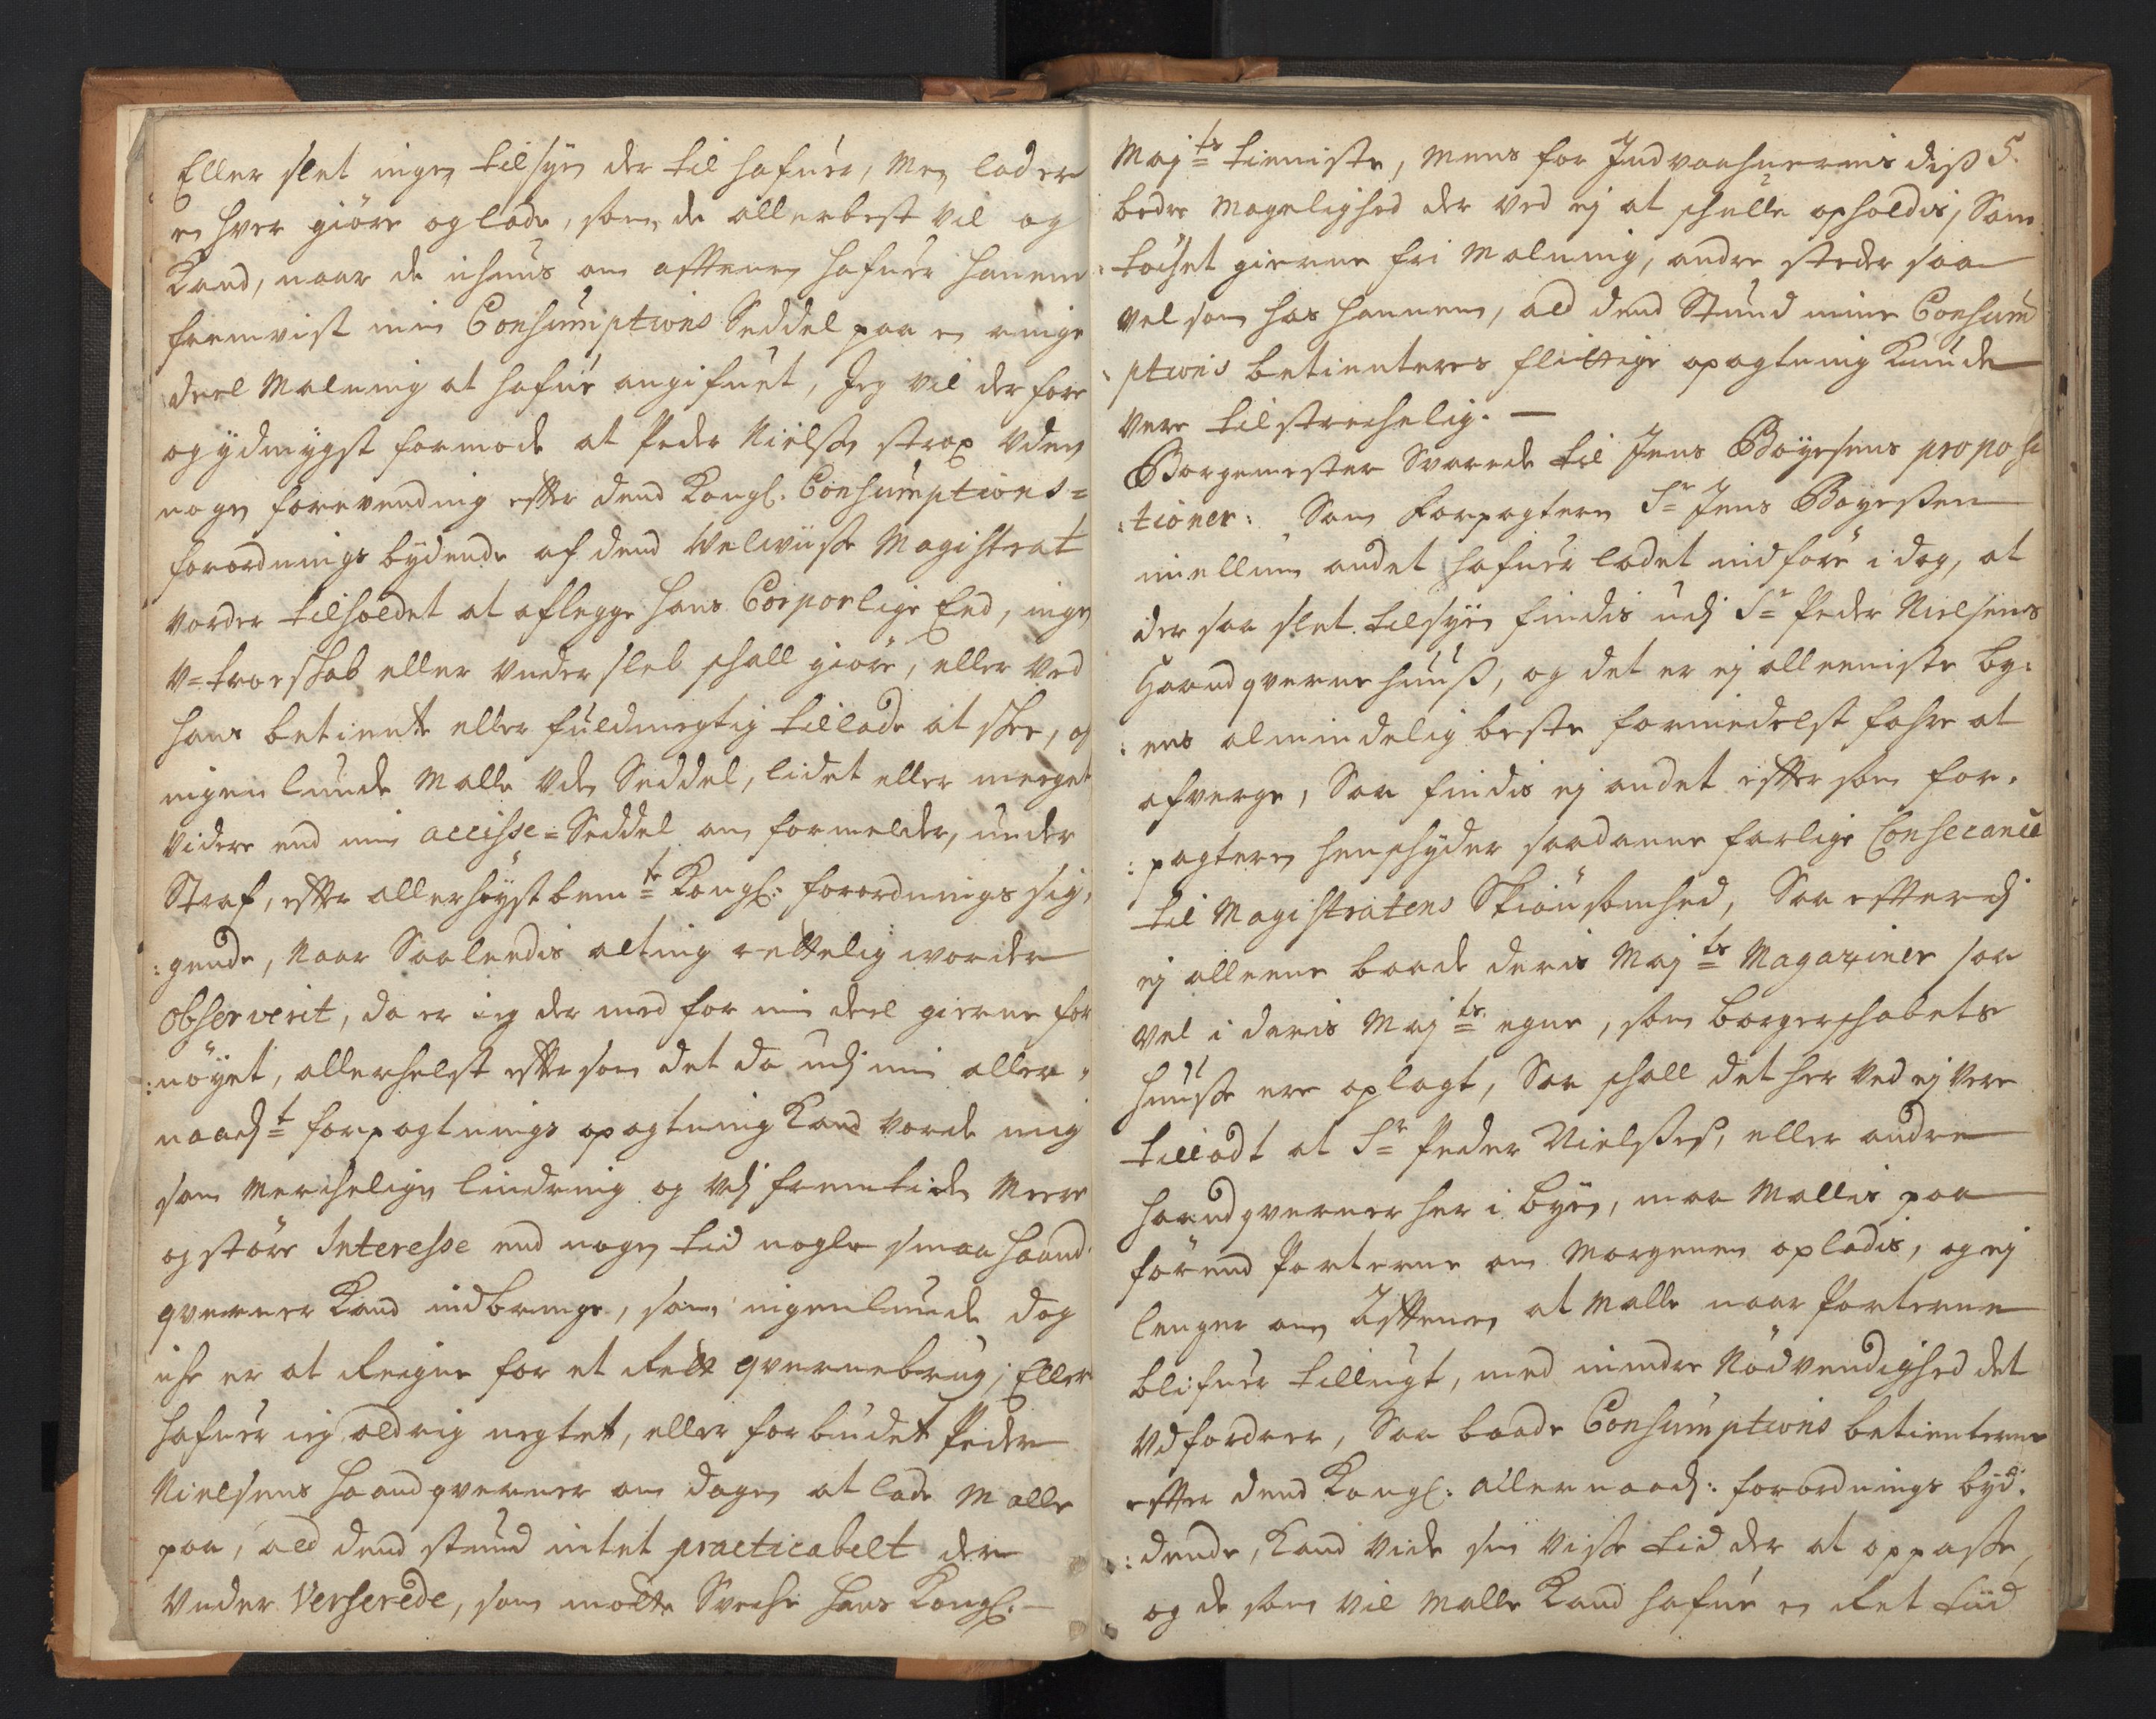 Eller slet ingen tilsyn der til hafuer, Men lader
en hver giøre og lade, som de allerbest vil og
Kand, naar de ichuns om afftenen hafuer hannem
fremvist min Consumptions Seddel paa en ringe
deel Malning at hafue angifuet, Jeg vil der fore
og ydmygst formode at Peder Nielsen strax uden
nogen forevending effter dend Kongl. Consumptions=
forordnings bydende af dend Welviise Magistrat
vorder tilholdet at aflegge hans Corporlige Eed, ingen
V=troeskab eller Undersleb schall giøre, eller ved
hans betiente eller fuldmegtig tillade at skee, og
ingenlunde Malle Uden Seddel, lidet eller meeget
videre end min accisse=Seddel om formelder, under
Straf, effter allerhøystbemte Kongl: forordnings sig,
:gende, Naar Saaledis alting rettelig worder
Observerit, da er ieg der med for min deel gierne for
:nøyet, allerhelst effter som det da udj min aller,
naadst forpagtnings opagtning Kand vorde mig
som merchelige lindring og udj fremtiden Meere
og støre Interesse end nogen tid nogle smaa haand
qverner Kand indbringe, som ingenlunde dog
iche er at Reigne for et Rett qvernebrug; Ellers
hafuer ieg aldrig negtet, eller forbudet Peder
Nielsens haandqverner om dagen at lade Malle
paa, ald dend stund intet practicabelt der
Under Verserede, som motte Sveche Hans Kongl.
Majts tieniste, Mens for Indvaahnernis dis 5.
bedre Magelighed der ved ej at schulle opholdis, Sam
:tøchet gierne fri Malning, andre steder saa
vel som hos hannem, ald dend Stund mine Consum
:ptions betienteres flittige opagtning Kunde
vere tilstrechelig. —
Borgemester Svarede til Jens Boyesens proposi
:tioner: Som Forpagteren Sr Jens Boyesen
imellum andet hafuer ladet indføre i dag, at
der saa slet tilsyn findis udj Sr Peder Nielsens
Haandqvernehuuß, og det er ej alleeniste by:
:ens almindelig beste formedelst fahre at
afverge, Saa findis ej andet effter som for,
:pagteren henschyder saadanne farlige Consecance
til Magistratens Skiønsomhed, Saa efftersom
ej alleene baade deris Majts Magaziner saa
vel i deris Majts egne, som borgerschabets
huuse ere oplagt, Saa schall det her ved ej vere
tilladt at Sr Peder Nielsens, eller andre
haandqverner her i byen, maa Mallis paa
førend Porterne om Morgenen opladis, og ej
lenger om Afftenen at Malle naar Porterne
blifuer tillugt, med mindre Nødvendighed det
udfordrer, Saa baade Consumptions betienterne
effter dend Kongl: allernaads: forordnings byd:
:dende, Kand vide sin visse tid der at oppasse,
og de som vil Malle Kand hafue en Ret tiid